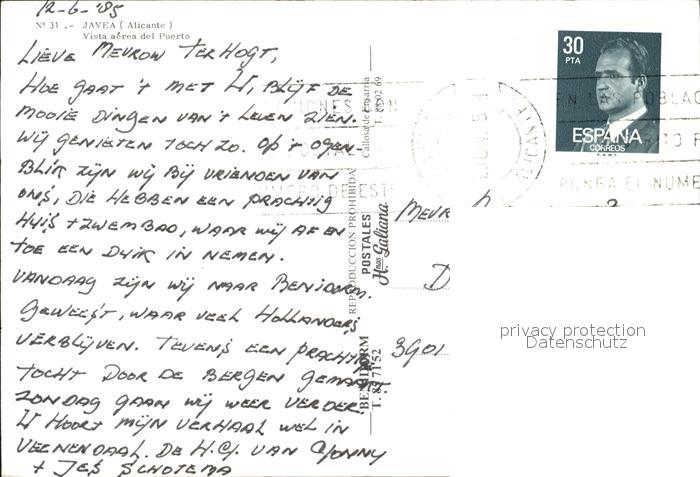 12-6-'85
Nº 31 .- JAVEA (Alicante)
Vista aérea del Puerto
LIEVE MEVROW TERHOGT,
HOE GAAT 'T MET U, BLIJF DE
MOOIE DINGEN VAN 'T LEVEN ZIEN.
WIJ GENIETEN TOCH ZO. OP 'T OGEN-
BLIK ZIJN WIJ BIJ VRIENDEN VAN
ONS, DIE HEBBEN EEN PRACHTIG
HUIS + ZWEMBAD, WAAR WIJ AF EN
TOE EEN DUIK IN NEMEN.
VANDAAG ZIJN WIJ NAAR BENIDORM
GEWEEST, WAAR VEEL HOLLANDERS
VERBLIJVEN. TEVENS EEN PRACHTIG
TOCHT DOOR DE BERGEN GEMAAKT
ZONDAG GAAN WIJ WEER VERDER.
U HOORT MIJN VERHAAL WEL IN
VEENENDAAL. DE H.G. VAN CONNY
+ JES SCHOTEMA
BENIDORM
T. 85 71 52
REPRODUCCION PROHIBIDA
POSTALES
Hnos Galiana
Callosa de Ensarriá
T. 88 02 69
30
PTA
ESPAÑA
CORREOS
PONGA EL NUME
ALICANTE
MEVR
D
3901
privacy protection
Datenschutz